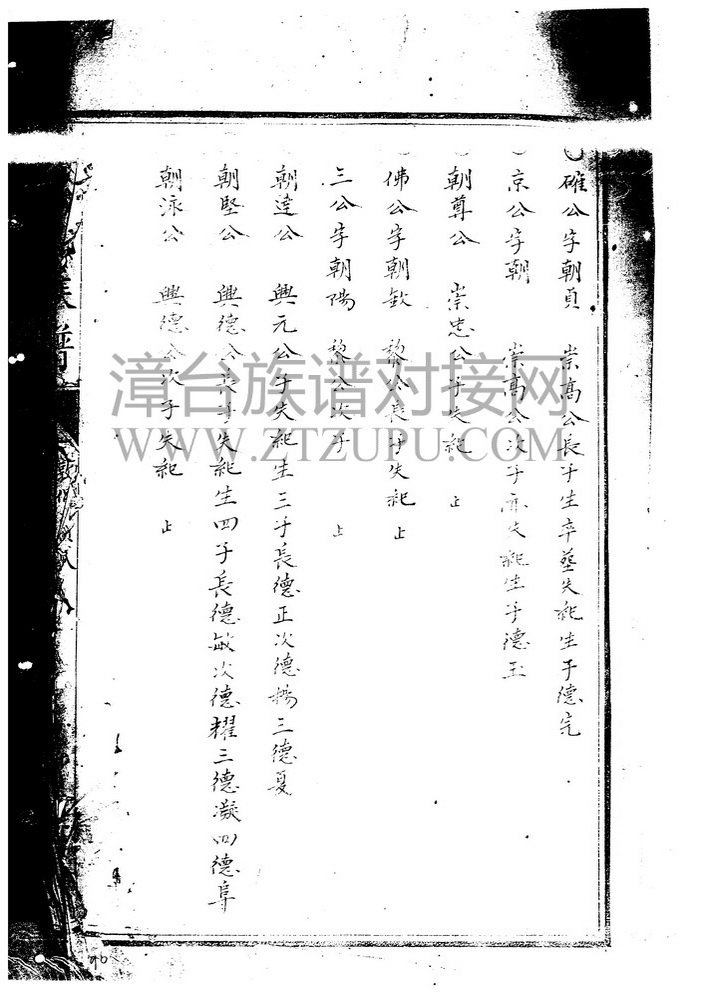 確公字朝貢 崇高公長子生卒塟失紀生子德完
京公字朝 崇高公次子亦失紀生子德玉
朝尊公 崇忠公子失紀 止
佛公字朝欽 黎公長子失紀 止
三公字朝陽 黎公次子 止
朝達公 興元公子失紀生三子長德正次德楊三德夏
朝堅公 興德公長子失紀生四子長德敏次德耀三德凝四德阜
朝泳公 興德公次子失紀 止
族譜
漳台族谱对接网
WWW.ZTZUPU.COM
90